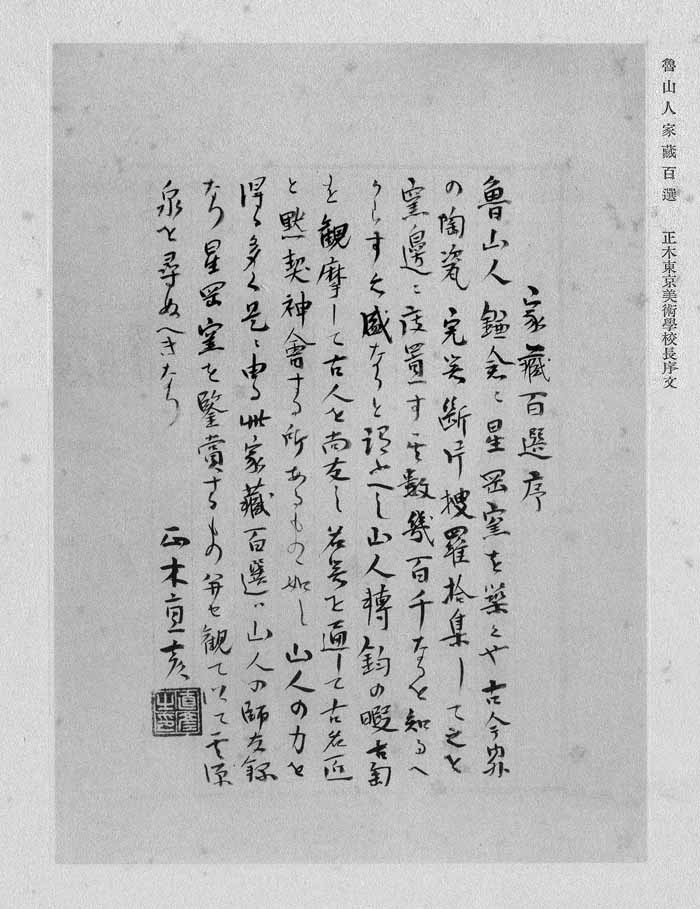 魯山人家藏百選 正木東京美術學校長序文
家藏百選序
魯山人鎌倉ニ星岡窯を築くや古今
の陶瓷完器斷片搜羅拾集して之を
窯邊ニ庋置す其數幾百千なるを知るへ
からす盛なりと謂ふへし山人轉鈞の暇古匋
を観摩して古人を尚友し名器を通して古名匠
と黙契神會する所あるもの如し山人の力を
得る多く是ニ由る此家藏百選ハ山人の師友録
なり星岡窯を鑒賞するもの并せ観て以て其源
泉を尋ぬへきなり
正木直彦
直彦之印